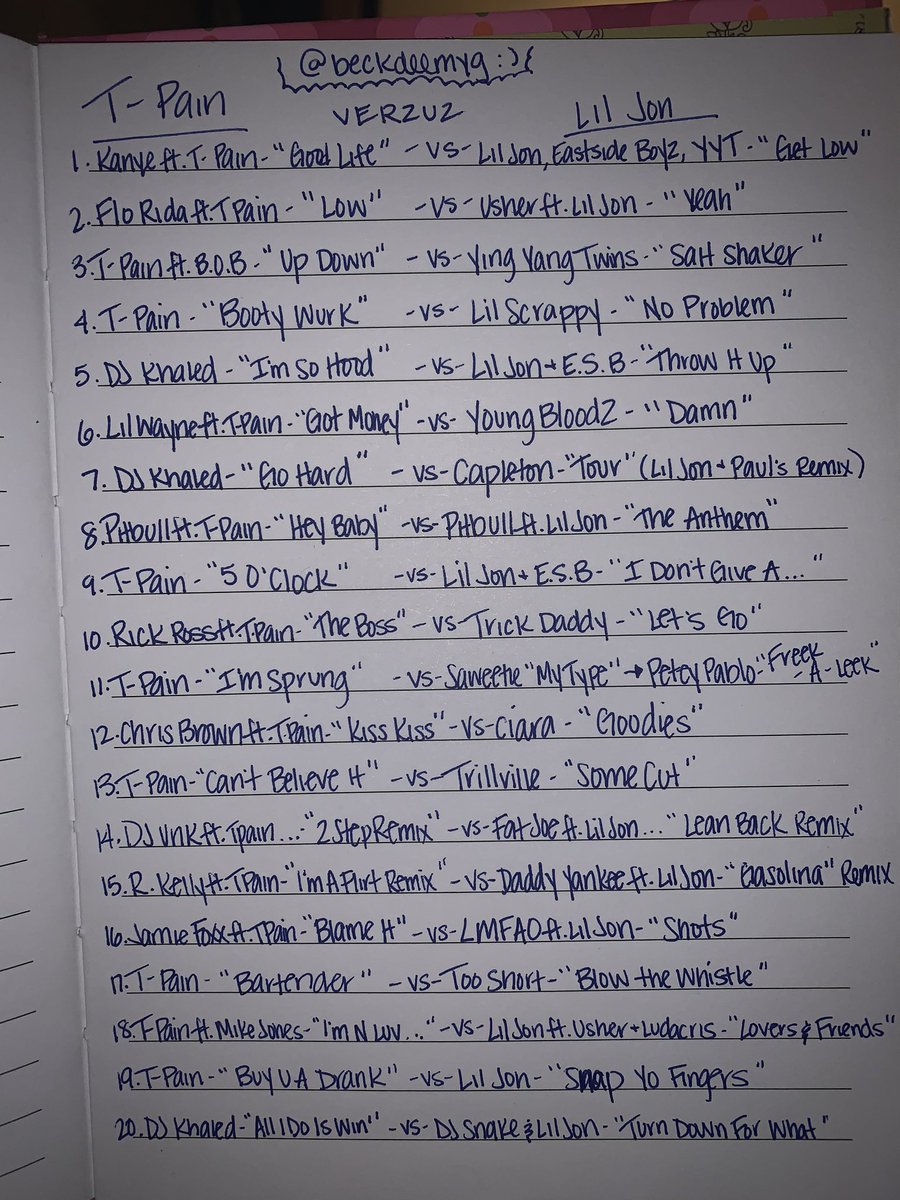 { @beckdeemyg :) {
T-Pain VERZUZ Lil Jon
1. Kanye ft. T-Pain - "Good Life" - VS - Lil Jon, Eastside Boyz, YYT - "Get Low"
2. Flo Rida ft. T Pain - "Low" - VS - Usher ft. Lil Jon - "Yeah"
3. T-Pain ft. B.O.B - "Up Down" - VS - Ying Yang Twins - "Salt Shaker"
4. T-Pain - "Booty Wurk" - VS - Lil Scrappy - "No Problem"
5. DJ Khaled - "I'm So Hood" - VS - Lil Jon + E.S.B - "Throw It Up"
6. Lil Wayne ft. T-Pain - "Got Money" - VS - Young BloodZ - "Damn"
7. DJ Khaled - "Go Hard" - VS - Capleton - "Tour" (Lil Jon + Paul's Remix)
8. Pitbull ft. T-Pain - "Hey Baby" - VS - Pitbull ft. Lil Jon - "The Anthem"
9. T-Pain - "5 O'Clock" - VS - Lil Jon + E.S.B - "I Don't Give A..."
10. Rick Ross ft. T-Pain - "The Boss" - VS - Trick Daddy - "Let's Go"
11. T-Pain - "I'm Sprung" - VS - Saweetie "My Type" → Petey Pablo "Freek-A-Leek"
12. Chris Brown ft. T-Pain - "Kiss Kiss" - VS - Ciara - "Goodies"
13. T-Pain - "Can't Believe It" - VS - Trillville - "Some Cut"
14. DJ Unk ft. Tpain... - "2 Step Remix" - VS - Fat Joe ft. Lil Jon... "Lean Back Remix"
15. R. Kelly ft. T-Pain - "I'm A Flirt Remix" - VS - Daddy Yankee ft. Lil Jon - "Gasolina" Remix
16. Jamie Foxx ft. T-Pain - "Blame It" - VS - LMFAO ft. Lil Jon - "Shots"
17. T-Pain - "Bartender" - VS - Too Short - "Blow the Whistle"
18. T-Pain ft. Mike Jones - "I'm N Luv..." - VS - Lil Jon ft. Usher + Ludacris - "Lovers & Friends"
19. T-Pain - "Buy U A Drank" - VS - Lil Jon - "Snap Yo Fingers"
20. DJ Khaled - "All I Do Is Win" - VS - DJ Snake & Lil Jon - "Turn Down For What"